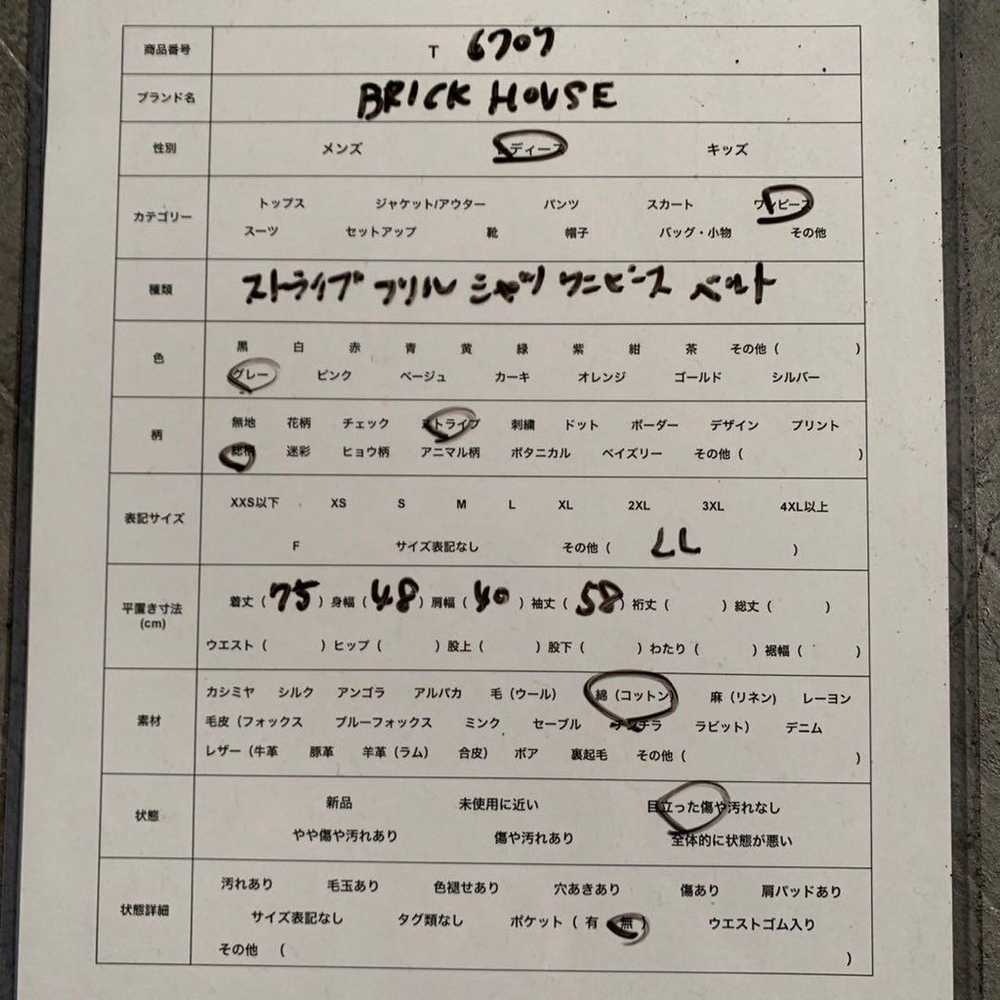 商品番号 T 6707
ブランド名 BRICK HOUSE
性別 メンズ レディース キッズ
カテゴリー
トップス ジャケット/アウター パンツ スカート ワンピース
スーツ セットアップ 靴 帽子 バッグ・小物 その他
種類 ストライプ フリル シャツ ワンピース ベルト
色
黒 白 赤 青 黄 緑 紫 紺 茶 その他（ ）
グレー ピンク ベージュ カーキ オレンジ ゴールド シルバー
柄
無地 花柄 チェック ストライプ 刺繍 ドット ボーダー デザイン プリント
総柄 迷彩 ヒョウ柄 アニマル柄 ボタニカル ペイズリー その他（ ）
表記サイズ
XXS以下 XS S M L XL 2XL 3XL 4XL以上
F サイズ表記なし その他（ LL ）
平置き寸法
(cm)
着丈（75）身幅（48）肩幅（40）袖丈（58）裄丈（ ）総丈（ ）
ウエスト（ ）ヒップ（ ）股上（ ）股下（ ）わたり（ ）裾幅（ ）
素材
カシミヤ シルク アンゴラ アルパカ 毛（ウール） 綿（コットン） 麻（リネン） レーヨン
毛皮（フォックス ブルーフォックス ミンク セーブル チンチラ ラビット） デニム
レザー（牛革 豚革 羊革（ラム） 合皮） ボア 裏起毛 その他（ ）
状態
新品 未使用に近い 目立った傷や汚れなし
やや傷や汚れあり 傷や汚れあり 全体的に状態が悪い
状態詳細
汚れあり 毛玉あり 色褪せあり 穴あきあり 傷あり 肩パッドあり
サイズ表記なし タグ類なし ポケット（ 有 無 ） ウエストゴム入り
その他 （ ）